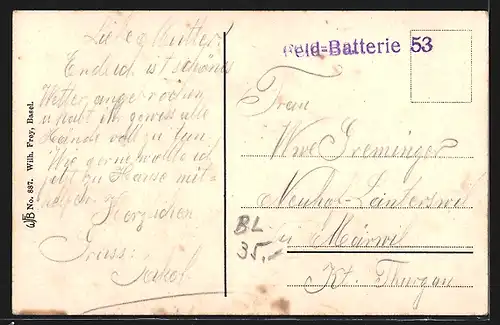 Liebe Mutter!
Endlich ist schönes
Wetter angebrochen
u habt ihr gewiss alle
Hände voll zu tun.
Wie gerne wollte ich
jetzt zu Hause mit-
helfen. Herzlichen
Gruss:
Jakob
WFB No. 837. Wilh. Frey, Basel.
Feld=Batterie 53
Frau
Wwe Greminger
Neuhof-Lanterswil
u Märwil
Kt. Thurgau
BL
35.-